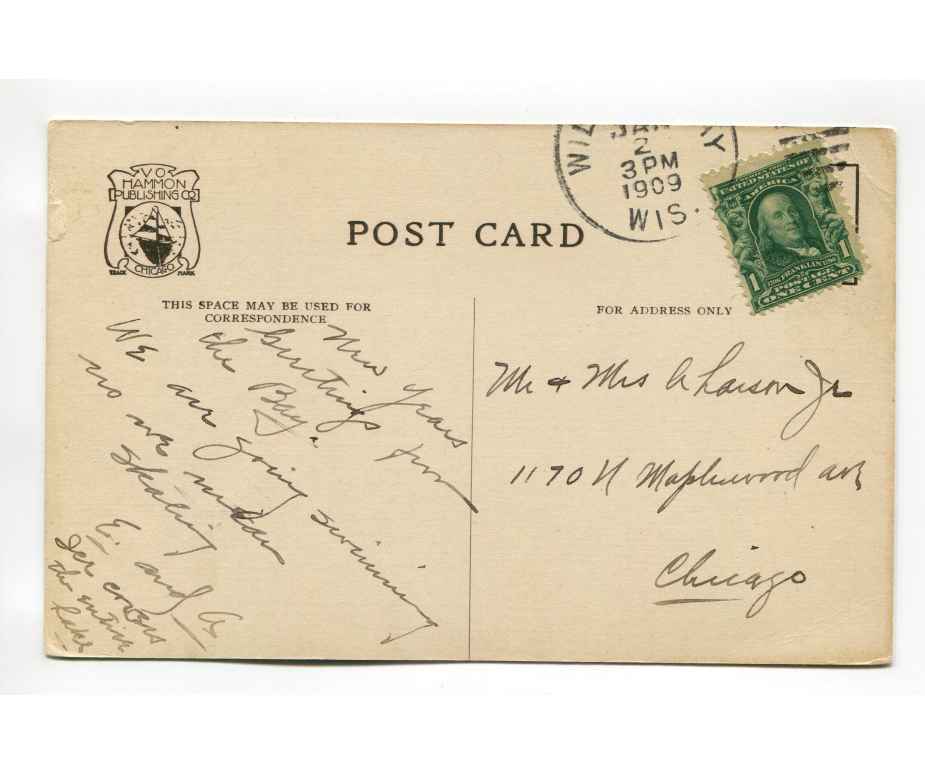 V O
HAMMON
PUBLISHING CO
CHICAGO
TRADE MARK
POST CARD
JAN
2
3 PM
1909
WIS.
UNITED STATES OF
AMERICA
1 1
FRANKLIN
POSTAGE
ONE CENT
THIS SPACE MAY BE USED FOR
CORRESPONDENCE
FOR ADDRESS ONLY
New Years
Greetings from
the Bay.
We are going swimming
no we mean
skating
E. and A
Ice covers
the entire
Lake
Mr & Mrs A Larson Jr
1170 N Maplewood ave
Chicago